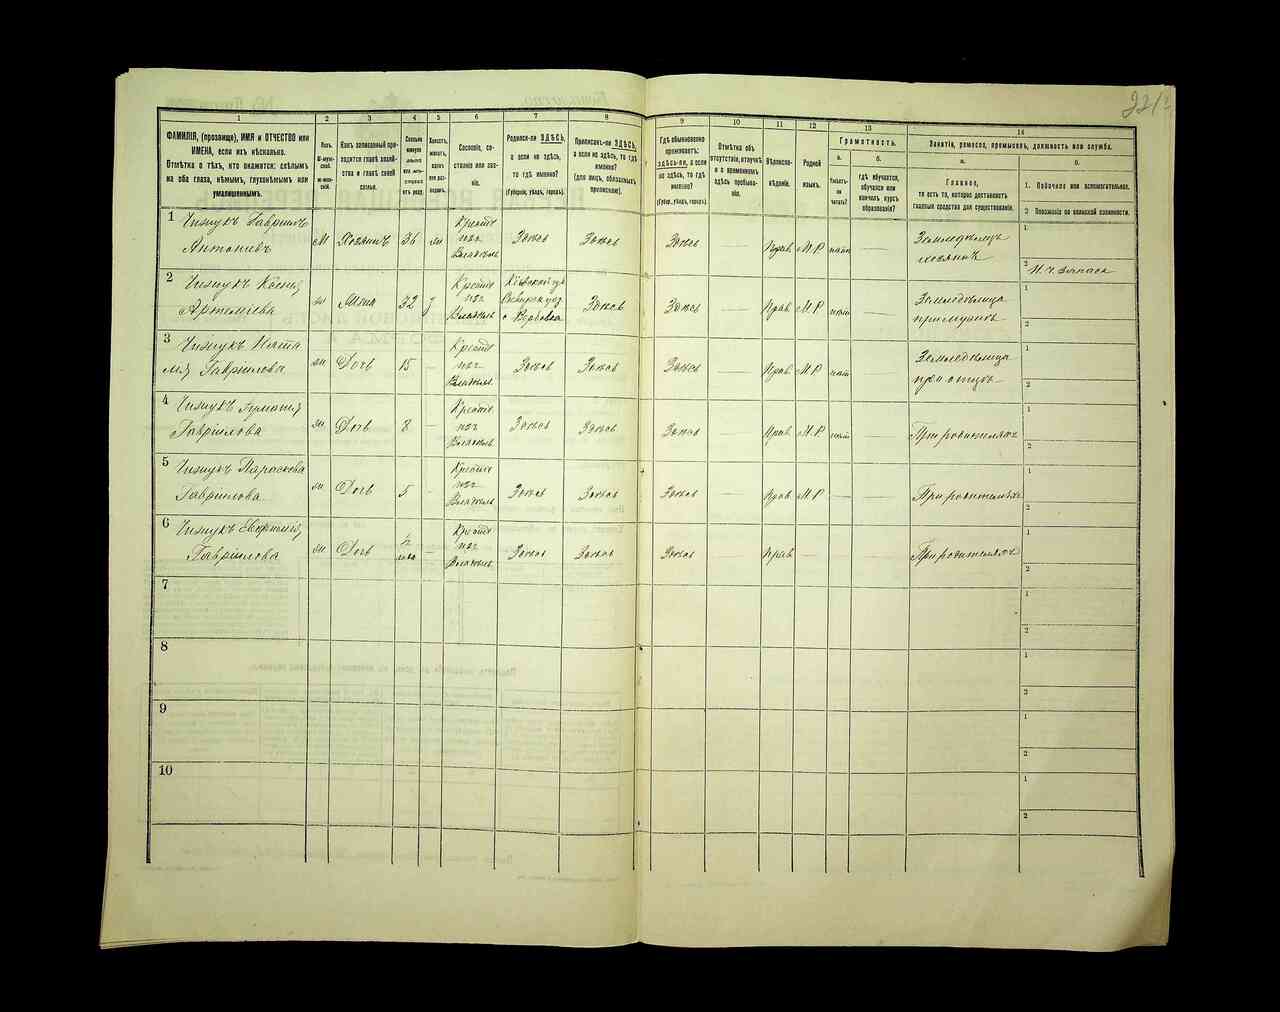 221
1 2 3 4 5 6 7 8 9 10 11 12 13 14
ФАМИЛІЯ, (прозвище), ИМЯ и ОТЧЕСТВО или
ИМЕНА, если ихъ нѣсколько.
Отмѣтка о тѣхъ, кто окажется: слѣпымъ
на оба глаза, нѣмымъ, глухонѣмымъ или
умалишеннымъ.
Полъ.
М-муж-
ской.
Ж-жен-
скій.
Какъ записанный при-
ходится главѣ хозяй-
ства и главѣ своей
семьи.
Сколько
минуло
лѣтъ
или мѣ-
сяцевъ
отъ роду.
Холостъ,
женатъ,
вдовъ
или раз-
веденъ.
Сословіе, со-
стояніе или зва-
ніе.
Родился-ли ЗДѢСЬ,
а если не здѣсь,
то гдѣ именно?
(Губернія, уѣздъ, городъ).
Приписанъ-ли ЗДѢСЬ,
а если не здѣсь, то гдѣ
именно?
(для лицъ, обязанныхъ
припискою).
Гдѣ обыкновенно
проживаетъ:
здѣсь-ли, а если
не здѣсь, то гдѣ
именно?
(Губер., уѣздъ, городъ).
Отмѣтка объ
отсутствіи, отлучкѣ
и о временномъ
здѣсь пребыва-
ніи.
Вѣроиспо-
вѣданіе.
Родной
языкъ.
Грамотность.
а. б.
Умѣетъ-
ли
читать?
гдѣ обучается,
обучался или
кончилъ курсъ
образованія?
Занятіе, ремесло, промыселъ, должность или служба.
а. б.
Главное,
то есть то, которое доставляетъ
главныя средства для существованія.
1. Побочное или вспомогательное.
2 Положеніе по воинской повинности.
1 Чижукъ Гавріилъ
Антоніевъ
М Хозяинъ 36 ж Крестьян изъ Владѣльч Здѣсь Здѣсь Здѣсь — Прав М.Р — Земледѣлецъ
хозяинъ
1
2 Н. Ч. Запаса
2 Чижукъ Ксенія
Артеміева
ж Жена 32 з Крестьян изъ Владѣльч Кіевской гу
с Вербовка Здѣсь Здѣсь — Прав М.Р — Земледѣлица
при мужѣ
1
2
3 Чижукъ Ната
лія Гавріилова
ж Дочь 15 — Крестьян изъ Владѣльч Здѣсь Здѣсь Здѣсь — Прав М.Р — Земледѣлица
при отцѣ
1
2
4 Чижукъ
Гавріилова
ж Дочь 8 — Крестьян изъ Владѣльч Здѣсь Здѣсь Здѣсь — Прав М.Р — При родителяхъ
1
2
5 Чижукъ Параскева
Гавріилова
ж Дочь 5 - Крестьян изъ Владѣльч Здѣсь Здѣсь Здѣсь — Прав М.Р — — При родителяхъ
1
2
6 Чижукъ Евфимія
Гавріилова
ж Дочь ½ — Крестьян изъ Владѣльч Здѣсь Здѣсь Здѣсь Прав — — — При родителяхъ
1
2
7
1
2
8
1
2
9
1
2
10
1
2